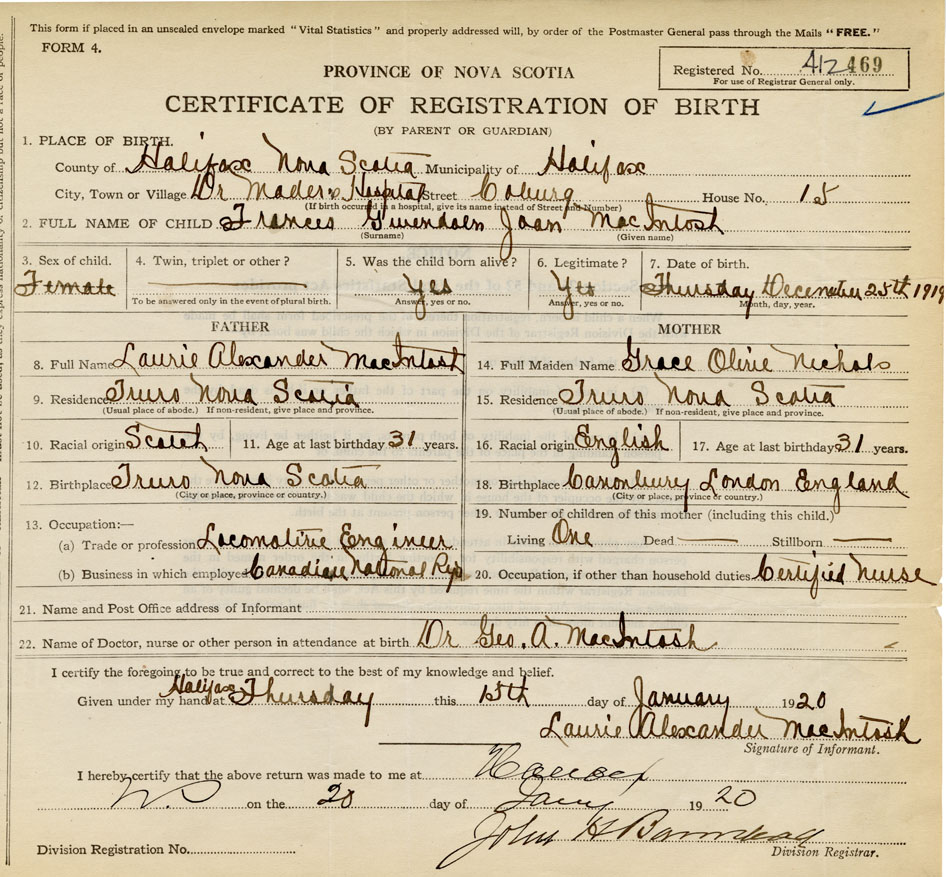 This form if placed in an unsealed envelope marked "Vital Statistics" and properly addressed will, by order of the Postmaster General pass through the Mails "FREE."
FORM 4.
Registered No. 412 469
For use of Registrar General only.
PROVINCE OF NOVA SCOTIA
CERTIFICATE OF REGISTRATION OF BIRTH
(BY PARENT OR GUARDIAN)
1. PLACE OF BIRTH.
County of Halifax Nova Scotia Municipality of Halifax
City, Town or Village Dr Mader's Hospital Street Coburg House No. 15
(If birth occurred in a hospital, give its name instead of Street and Number)
2. FULL NAME OF CHILD Frances Gwendoln Joan MacIntosh
(Surname) (Given name)
3. Sex of child. 4. Twin, triplet or other? 5. Was the child born alive? 6. Legitimate? 7. Date of birth.
Female Yes Yes Thursday December 25th 1919
To be answered only in the event of plural birth. Answer, yes or no. Answer, yes or no. Month, day, year.
FATHER MOTHER
8. Full Name Laurie Alexander MacIntosh 14. Full Maiden Name Grace Olive Nichols
9. Residence Truro Nova Scotia 15. Residence Truro Nova Scotia
(Usual place of abode.) If non-resident, give place and province. (Usual place of abode.) If non-resident, give place and province.
10. Racial origin Scotch 11. Age at last birthday 31 years. 16. Racial origin English 17. Age at last birthday 31 years.
12. Birthplace Truro Nova Scotia 18. Birthplace Canonbury London England
(City or place, province or country.) (City or place, province or country.)
13. Occupation:— 19. Number of children of this mother (including this child.)
(a) Trade or profession Locomotive Engineer Living One Dead Stillborn
(b) Business in which employed Canadian National Rys 20. Occupation, if other than household duties Certified Nurse
21. Name and Post Office address of Informant
22. Name of Doctor, nurse or other person in attendance at birth Dr Geo. A. MacIntosh
I certify the foregoing to be true and correct to the best of my knowledge and belief.
Given under my hand at Halifax Thursday this 15th day of January 1920
Laurie Alexander MacIntosh
Signature of Informant.
I hereby certify that the above return was made to me at
N.S on the 20 day of Jany 1920
John H
Division Registration No. Division Registrar.